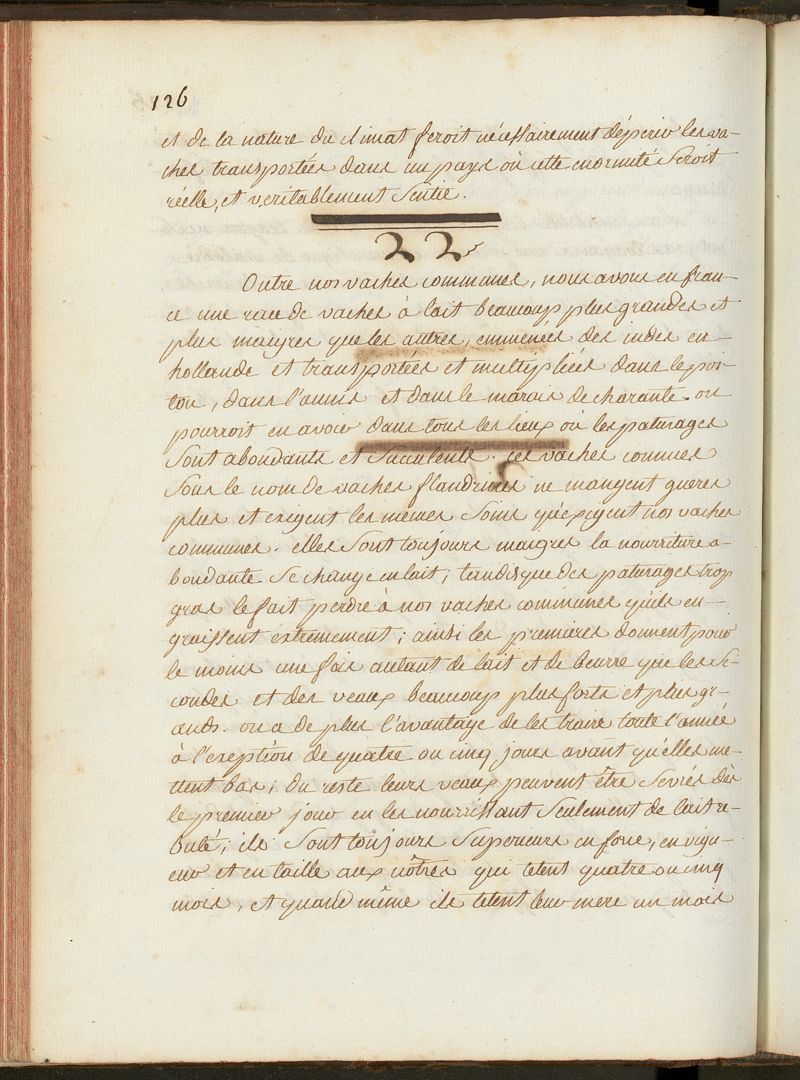 126
et de la nature du climat feroit nécessairement dépérir les va-
ches transportées dans un pays où cette enormité seroit
réelle, et veritablement sentie.
22
Outre nos vaches communes, nous avons en fran-
ce une race de vaches à lait beaucoup plus grandes et
plus maigres que les autres, emmenées des indes en
hollande et transportées et multipliées dans le poi-
tou, dans l'aunis et dans le marais de charante. on
pourroit en avoir dans tous les lieux où les paturages
sont abondants et succulents. ces vaches connues
sous le nom de vaches flandrines ne mangent gueres
plus et exigent les mêmes soins qu'exigent nos vaches
communes. elles sont toujours maigres la nourriture a-
bondante se change en lait; tandisque des paturages trop
gras le fait perdre à nos vaches communes qu'ils en-
graissent extremement; ainsi les premieres donnent pour
le moins une fois autant de lait et de beurre que les se-
condes et des veaux beaucoup plus forts et plus gr-
ands. on a de plus l'avantage de les traire toute l'année
à l'exeption de quatre ou cinq jours avant qu'elles me-
ttent bas; du reste leurs veaux peuvent être sevrés dès
le premier jour en les nourrissant seulement de lait re-
buté; ils sont toujours superieurs en force, en vigu-
eur et en taille aux nôtres qui tetent quatre ou cinq
mois, et quand même ils tetent leur mere un mois